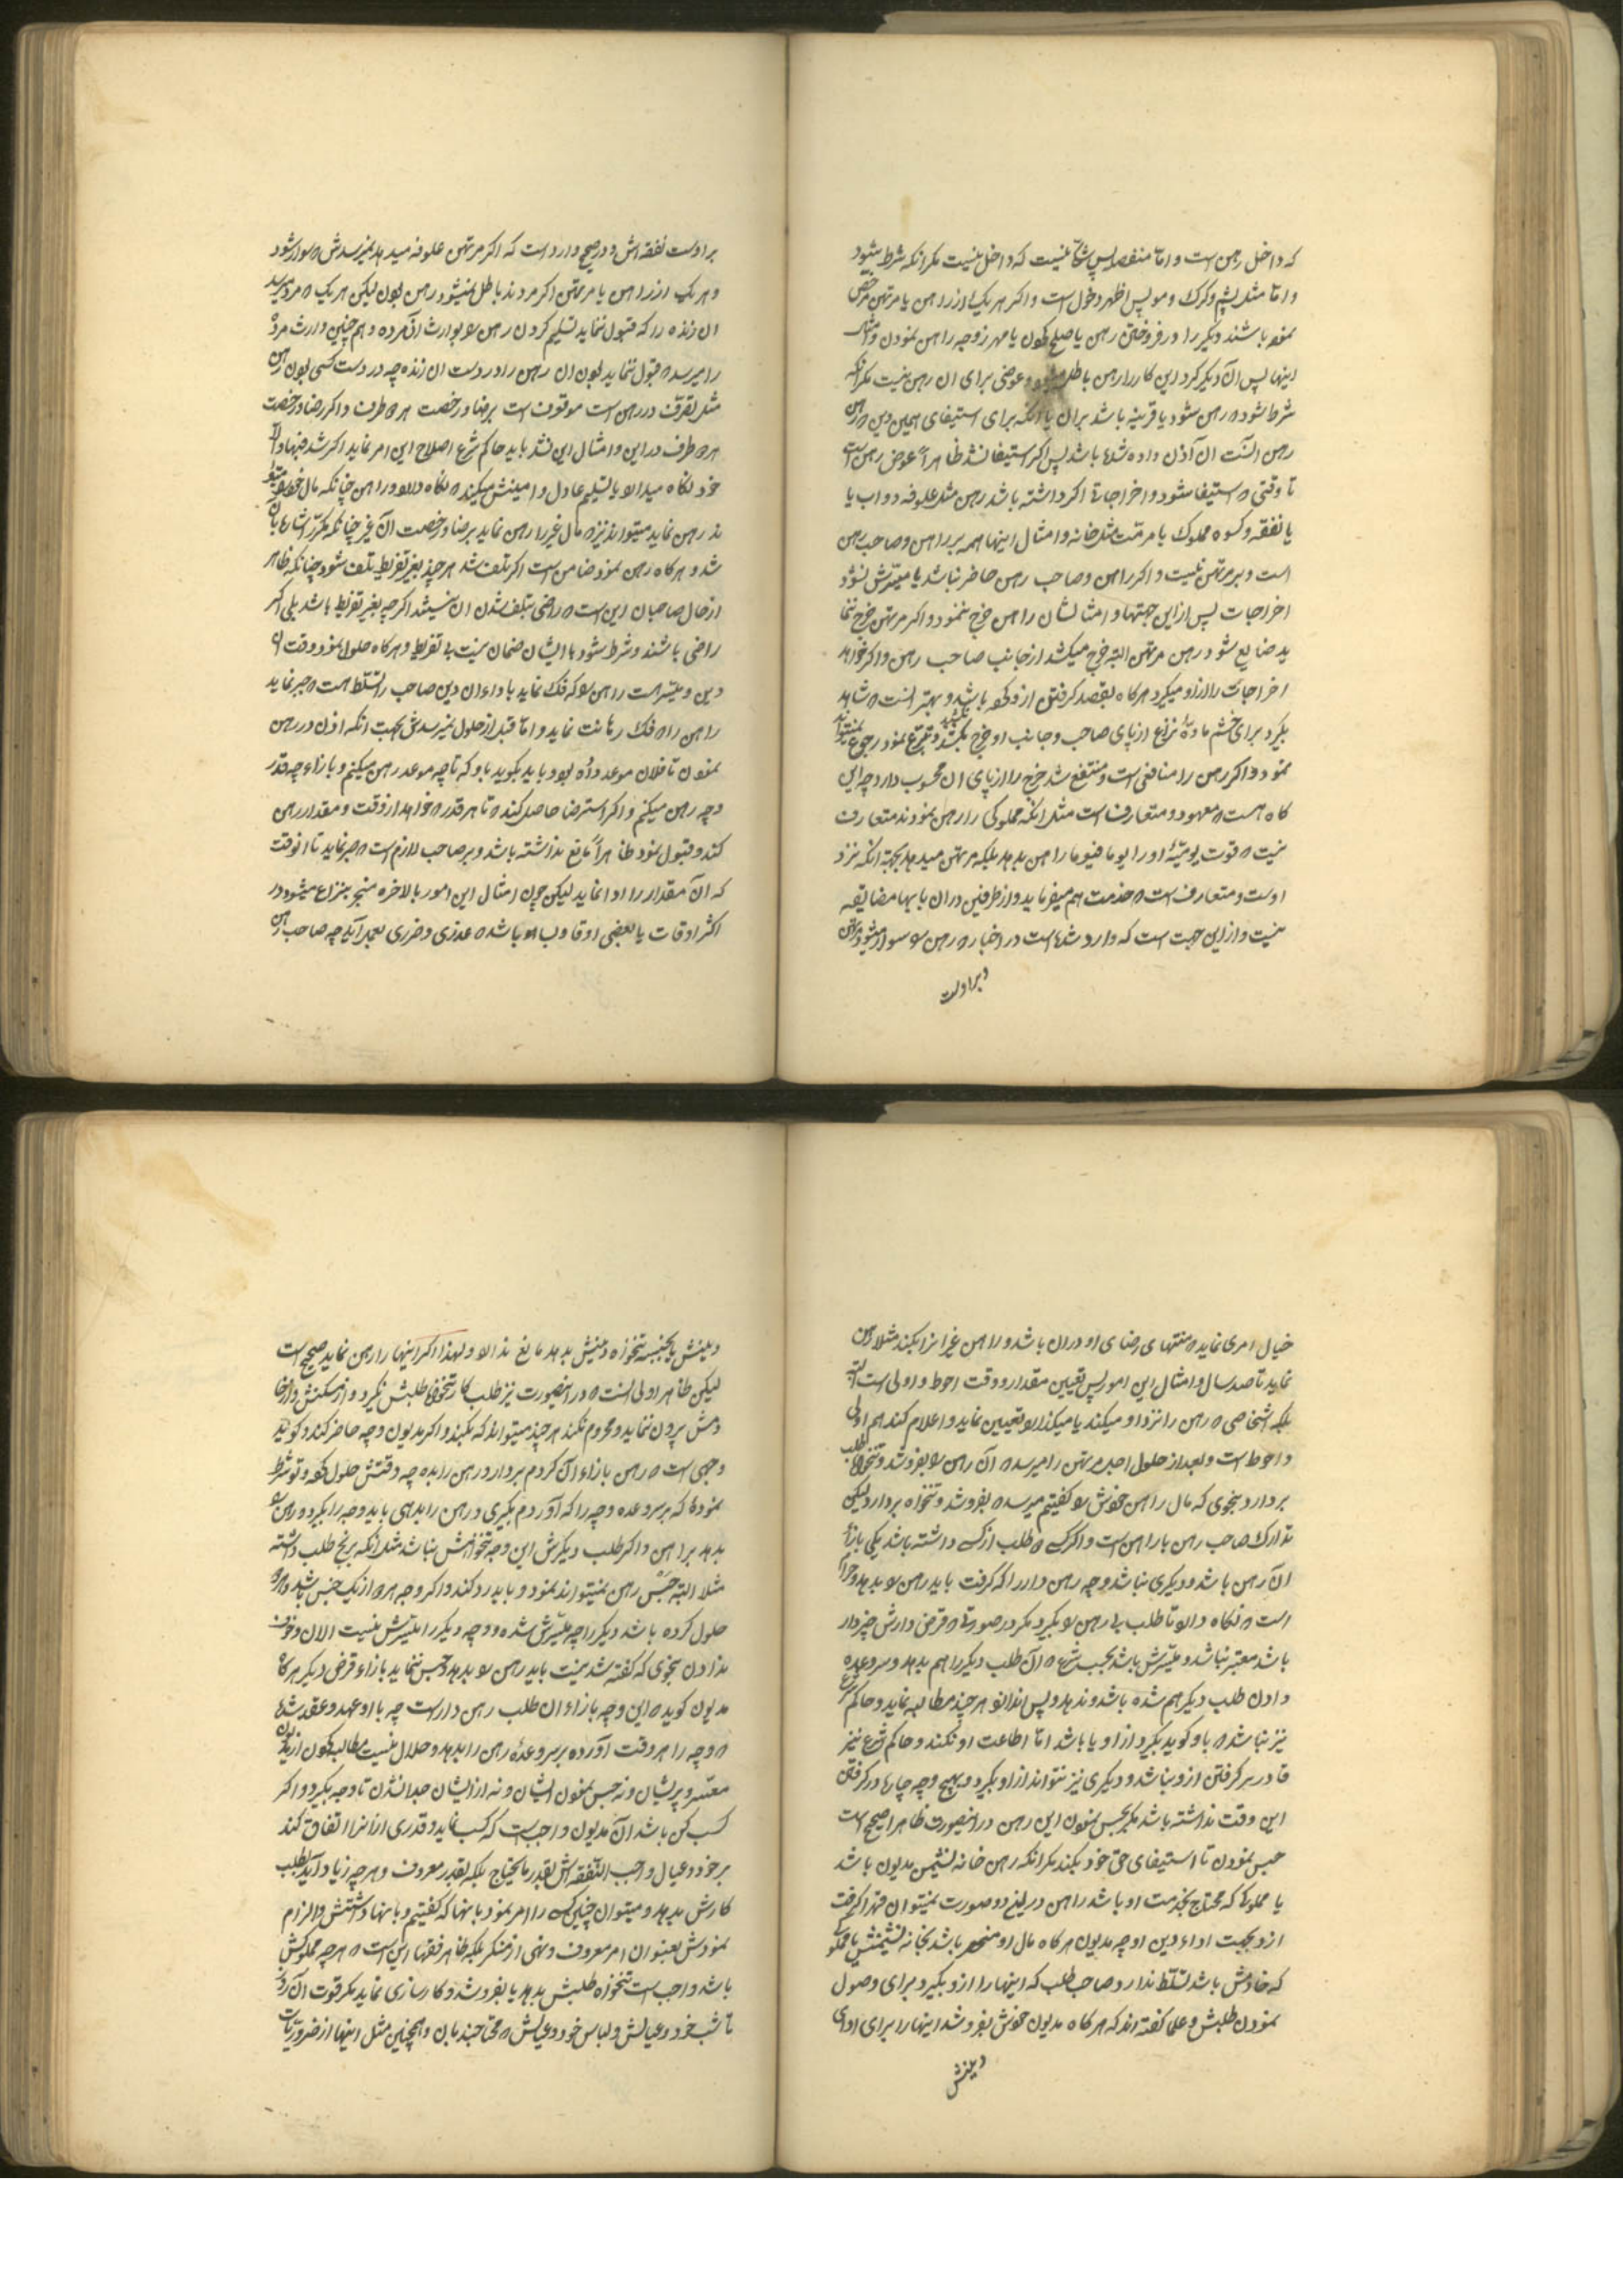 که داخل رهن است و اما منفصل پس شکی نیست که داخل نیست مکر انکه شرط شود
و اما مثل پشم و کرک و مو پس اظهر دخول است و اکر هر یک از راهن یا مرتهن مرخص
نموده باشند دیکری را در فروختن رهن یا صلح نمودن یا مهر زوجه راهن نمودن و امثال
اینها پس آن دیکر کرد این کار را رهن باطل میشود و عوضی برای ان رهن نیست مکر انکه
شرط شود رهن شود یا قرینه باشد بران یا انکه برای استیفای همین دین
رهن ان اذن داده شده باشد پس اکر استیفا نشد ظاهراً عوض رهن است
تا وقتی استیفا شود و اخراجات اکر داشته باشد رهن مثل علوفه دواب یا
یا نفقه و کسوه مملوک یا مرمّت مثل خانه و امثال اینها همه بر راهن و صاحب رهن
است و بر مرتهن نیست و اکر راهن و صاحب رهن حاضر نباشد یا میسّرش نشود
اخراجات پس از این جهتها و امثالشان راهن خرج ننمود و اکر مرتهن خرج ننما
ید ضایع شود رهن مرتهن البته خرج میکشد از جانب صاحب رهن و اکر خواهد
اخراجات را از او میکیرد هرکاه بقصد کرفتن ازو کرده باشد و بهتر انست شاهد
بکیرد برای خشم ماده نزاع از پای صاحب و جانب او خرج نکشد و تبرع نمود رجوع نمیتواند
نمود و اکر رهن را منافعی است و منتفع شد خرج را از پای ان محسوب دارد چه این
کاه هست معهود و متعارف است مثل انکه مملوکی را رهن نمودند متعارف
نیست قوت یومیّه او را یوما فیوما راهن بدهد بلکه مرتهن میدهد بجهة انکه نزد
اوست و متعارف است خدمت هم میفرماید و از طرفین دران بابها مضایقه
نیست و از این جهت است که وارد شده است در اخبار رهن سوار میشود مرتهن
و بر اوست
بر اوست نفقه اش و در صحیح وارد است که اکر مرتهن علوفه میدهد میرسدش سوار شود
و هر یک از راهن یا مرتهن اکر مردند باطل نمیشود رهن بودن لیکن هر یک مرد میرسد
ان زنده را که قبول ننماید تسلیم کردن رهن بوارث ان مرده و هم چنین وارث مرده
را میرسد قبول ننماید بودن ان رهن را در دست ان زنده چه در دست کسی بودن رهن
مثل تصرّف در رهن است موقوف است برضا و رخصت هر دو طرف و اکر رضا و رخصت
هر دو طرف در این و امثال این نشد باید حاکم شرع اصلاح این امر نماید اکر شد فبها و الّا
خود نکاه میدارد یا تسلیم عادل و امینش میکند نکاه دارد و راهن چنانکه مال خود میتو
ند رهن نماید میتواند نیز مال غیر را رهن نماید برضا و رخصت آن غیر چنانکه مکرر اشاره بان
شد و هرکاه رهن نمود ضامن است اکر تلف شد هر چند بغیر تفریط تلف شود چنانکه ظاهر
از حال صاحبان این است راضی بتلف شدن ان نیستند اکر چه بغیر تفریط باشد بلی اکر
راضی باشند و شرط شود با ایشان ضمان نیست بی تفریط و هرکاه حلول نمود وقت
دین و میسّر است راهن که فک نماید باداء ان دین صاحب را تسلط هست جبر نماید
راهن را فک رهانت نماید و اما قبل از حلول نمیرسدش بجهت انکه اذن در رهن
نمودن تا فلان موعد داده بود و باید بکوید باو که تا چه موعد رهن میکنم و بازاء چه قدر
وجه رهن میکنم و اکر استرضا حاصل کند تا هر قدر خواهد از وقت و مقدار رهن
کند و قبول نمود ظاهراً مانع نداشته باشد و بر صاحب لازم است صبر نماید تا انوقت
که آن مقدار را ادا نماید لیکن چون امثال این امور بالاخره منجر بنزاع میشود در
اکثر اوقات یا بعضی اوقات و بسا باشد عذری و ضرری بعمل آید چه صاحب رهن
خیال امری نماید منتهای رضای او دران باشد و راهن غیر انرا بکند مثلا رهن
نماید تا صد سال و امثال این امور پس تعیین مقدار و وقت احوط و اولی است البته
بلکه اشخاصی رهن را نزد او میکند یا میکذارد تعیین نماید و اعلام کند هم اولی
و احوط است و بعد از حلول اجل مرتهن را میرسد آن رهن بفروشد و تنخواه طلب
بردارد بنحوی که مال راهن خودش کفتیم میرسد بفروشد و تنخواه بردارد لیکن
تدارک صاحب رهن با راهن است و اکر کسی طلب از کسی داشته باشد یکی بازاء
آن رهن باشد و دیکری نباشد وجه رهن دار را که کرفت باید رهن بدهد و حرام
است نکاه دارد تا طلب بی رهن بکیرد مکر در صورتی قرض دارش خبردار
باشد معتبر نباشد و میسّرش باشد بحسب شرع آن طلب دیکر را هم بدهد و سر وعده
دادن طلب دیکر هم شده باشد و ندهد و پس اندازد هر چند مطالبه نماید و حاکم شرع
نیز نباشد باو کوید بکیرد از او یا باشد اما اطاعت او نکند و حاکم شرع نیز
قادر بر کرفتن ازو نباشد و دیکری نیز نتواند از او بکیرد و بهیچ وجه چاره در کرفتن
این وقت نداشته باشد مکر بحبس نمودن این رهن در اینصورت ظاهرا صحیح است
حبس نمودن تا استیفای حق خود بکند مکر انکه رهن خانه نشیمن مدیون باشد
یا مملوکی که محتاج بخدمت او باشد راهن در این دو صورت نمیتوان قهرا کرفت
ازو بجهت اداء دین او چه مدیون هرکاه مال او منحصر باشد بخانه نشیمنش یا مملوکی
که خادمش باشد تسلّط ندارد صاحب طلب که اینها را ازو بکیرد برای وصول
نمودن طلبش و علما کفته اند که هرکاه مدیون خودش بفروشد اینها را برای ادای
دینش
دینش یا بجنسه تنخواه دینش بدهد مانع ندارد و لهذا اکر اینها را رهن نماید صحیح است
لیکن ظاهر اولی انست در اینصورت نیز طلب کار تنخواه طلبش نکیرد و از مسکنش و از خا
دمش بیرون ننماید و محروم نکند هر چند میتواند که بکند و اکر مدیون وجه حاضر کند و کوید
وجهی است رهن بازاء آن کردم بردار و رهن را بده چه وقتش حلول کرده و تو شرط
نمودۀ که بر سر وعده وجه را که آوردم بکیری و رهن را بدهی باید وجه را بکیرد و رهن
بدهد براهن و اکر طلب دیکرش این وجه تنخواهش نباشد مثل انکه برنج طلب داشته
مثلا البته حبس رهن نمیتواند نمود و باید رد کند و اکر وجه هر دو از یک جنس باشد و هر دو
حلول کرده باشد دیکر را چه میسّرش شده و وجه دیکر را میسّرش نیست الان و خوف
ندادن بنحوی که کفته شد نیست باید رهن بدهد و حبس ننماید بازاء قرض دیکر هرکاه
مدیون کوید این وجه بازاء ان طلب رهن دار است چه با او عهد و عقد شده
وجه را هر وقت آورده بر سر وعدۀ رهن را بدهد و حلال نیست مطالب نمودن از مدیون
معسر و پریشان و نه حبس نمودن ایشان و نه از ایشان جدا نشدن تا وجه بکیرد و اکر
کسب کن باشد آن مدیون واجب است که کسب نماید و قدری ازانرا انفاق کند
بر خود و عیال واجب النفقه اش بقدر مایحتاج بلکه بقدر معروف و هر چه زیاد آید بطلب
کارش بدهد و میتوان چنین کسی را امر نمود بانها که کفتیم و بانها داشتنش و الزام
نمودش بعنوان امر معروف و نهی از منکر بلکه ظاهر فقها این است هر چه مملوکش
باشد واجب است تنخواه طلبش بدهد یا بفروشد و کارسازی نماید مکر قوت آن روز
تا شب خود و عیالش و لباس خود و عیالش محتاجند بان و همچنین مثل اینها از ضروریات